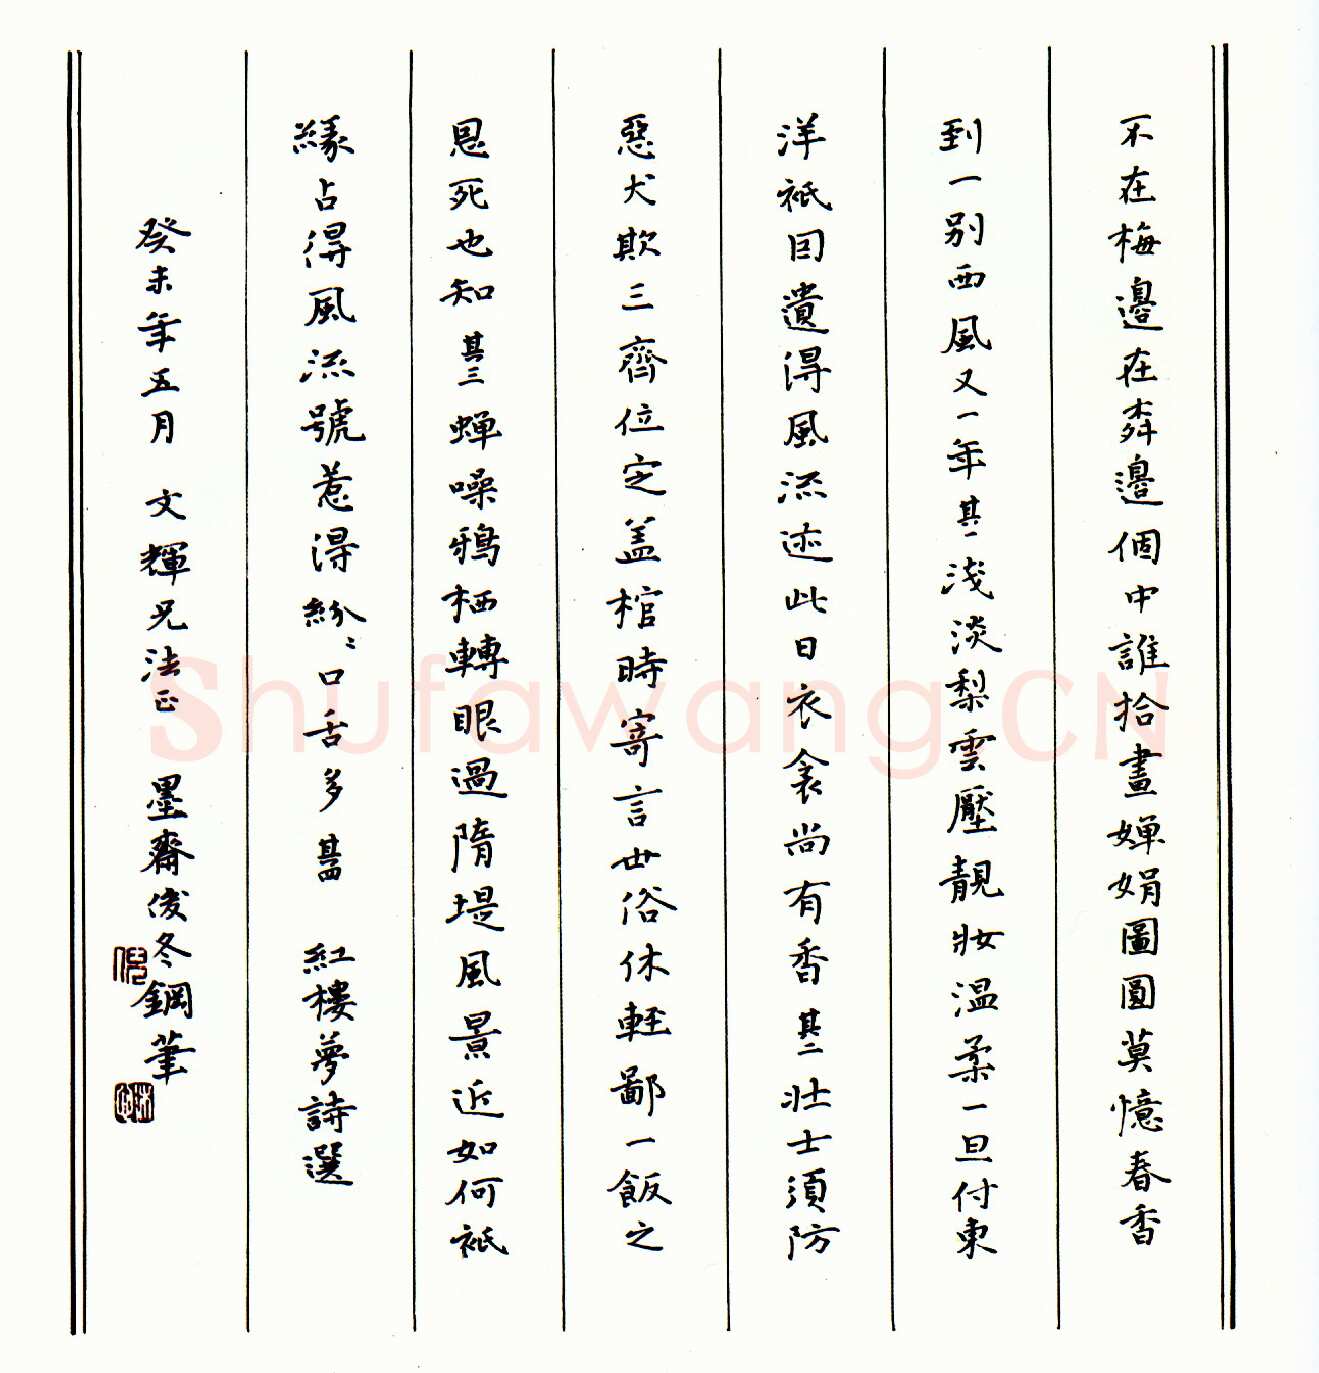 不在梅邊在柳邊個中誰拾畫嬋娟團圓莫憶春香
到一別西風又一年其一淺淡梨雲壓靚妝溫柔一旦付東
洋衹因遺得風流迹此日衣衾尚有香其二壯士須防
惡犬欺三齊位定盖棺時寄言世俗休輕鄙一飯之
恩死也知其三蟬噪鴉栖轉眼過隋堤風景近如何衹
緣占得風流號惹得紛〻口舌多其四 紅樓夢詩選
癸未年五月 文輝兄法正 墨齋俊冬鋼筆
Shufawang.CN